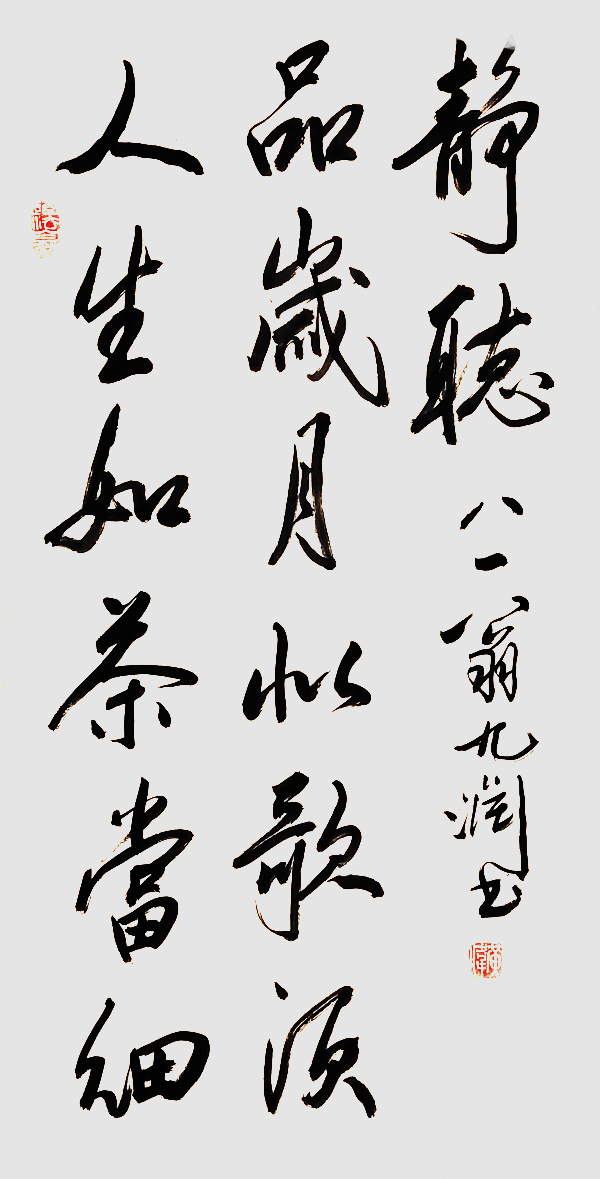 人生如茶當細
品歲月似歌須
静聽 八一翁九潤书